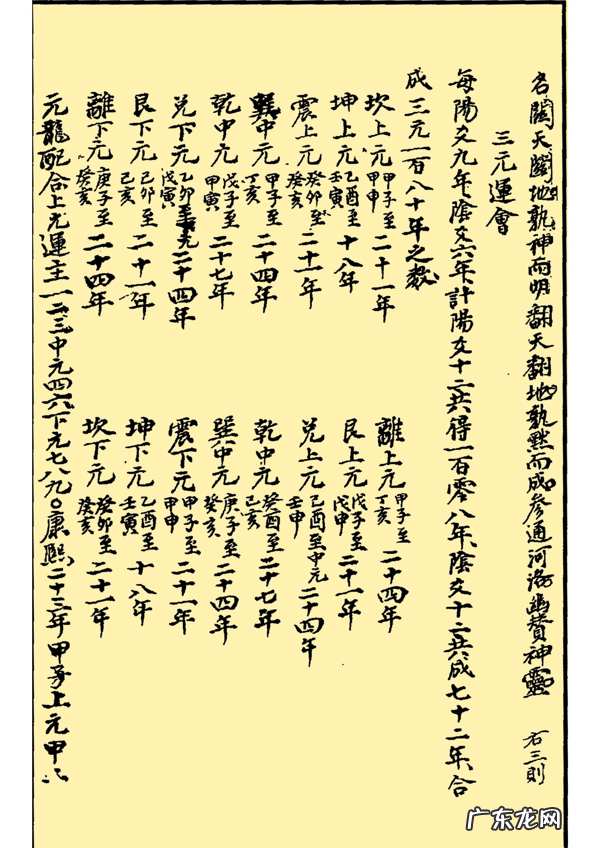 名闔天闢地孰神而明翻天翻地孰默而成參通河洛幽贊神靈 右三則
三元運會
每陽爻九年陰爻六年計陽爻十二共得一百零八年陰爻十二共成七十二年合
成三元一百八十年之數
坎上元甲子至甲申二十一年
坤上元乙酉至壬寅十八年
震上元癸卯至癸亥二十一年
巽中元甲子至丁亥二十四年
乾中元戊子至甲寅二十七年
兌下元乙卯至戊寅二十四年
艮下元己卯至己亥二十一年
離下元庚子至癸亥二十四年
離上元甲子至丁亥二十四年
艮上元戊子至戊申二十一年
兌上元己酉至中元壬申二十四年
乾中元癸酉至己亥二十七年
巽中元庚子至癸亥二十四年
震下元甲子至甲申二十一年
坤下元乙酉至壬寅十八年
坎下元癸卯至癸亥二十一年
元龍配合上元運主一二三中元四六下元七八九〇康熙二十三年甲子上元甲
广东龙网